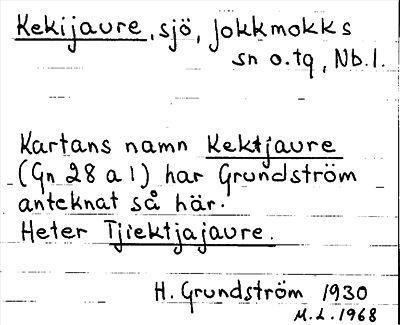 Kekijaure, sjö, Jokkmokks
sn o. tg, Nb. l.
Kartans namn Kektjaure
(Gn 28 a 1) har Grundström
anteknat så här.
Heter Tjiektjajaure.
H. Grundström 1930
M.L. 1968